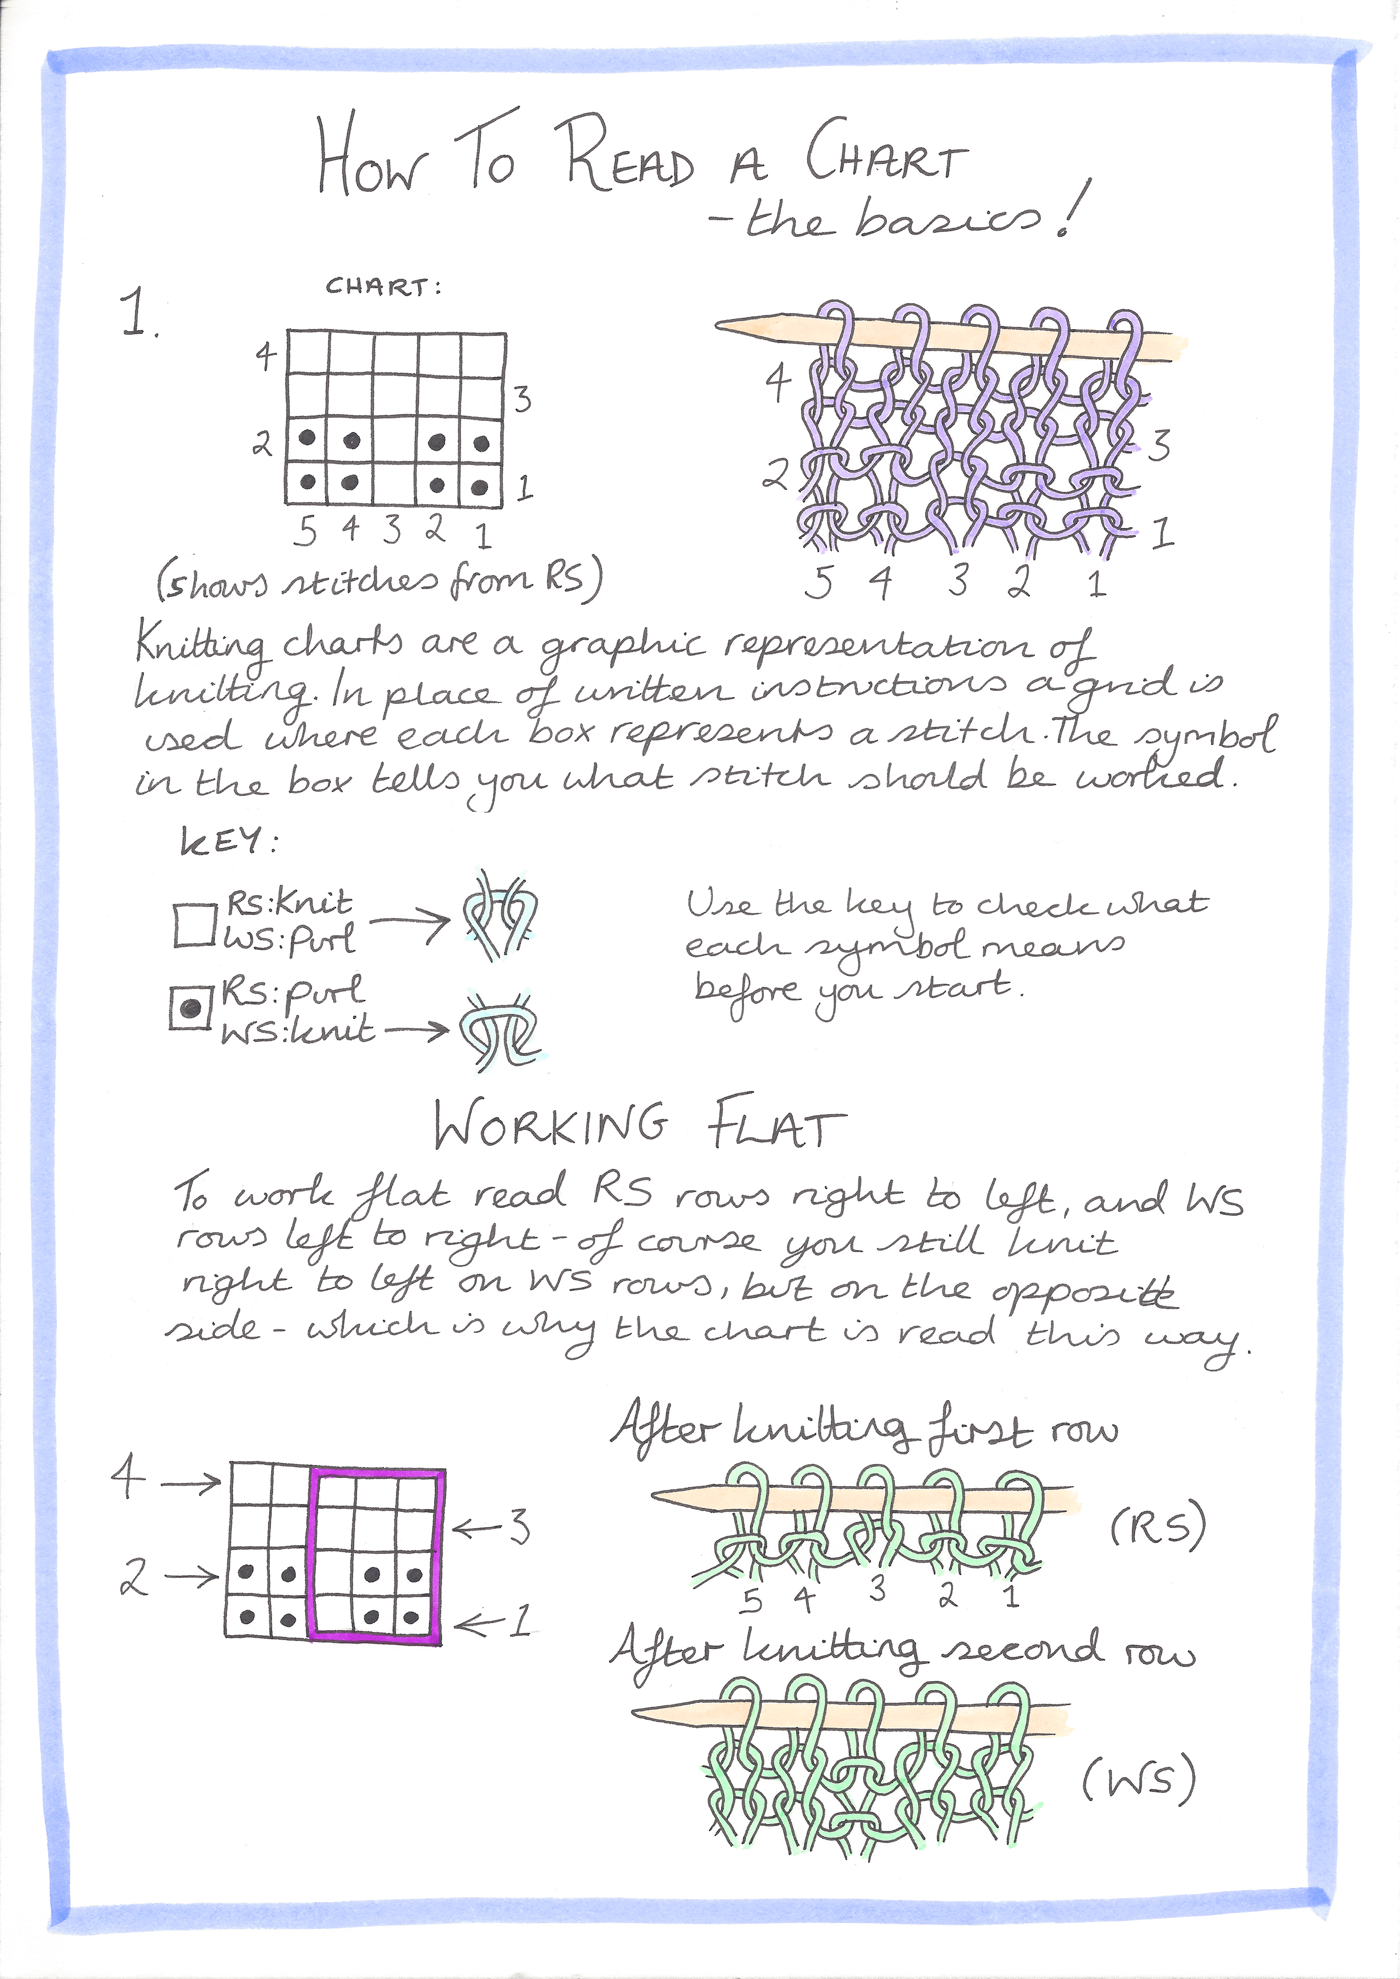 HOW TO READ A CHART
- the basics!
1.
CHART:
4
3
2
1
5 4 3 2 1
(shows stitches from RS)
4
3
2
1
5 4 3 2 1
Knitting charts are a graphic representation of
knitting. In place of written instructions a grid is
used where each box represents a stitch. The symbol
in the box tells you what stitch should be worked.
KEY:
RS: Knit
WS: Purl
RS: purl
WS: knit
Use the key to check what
each symbol means
before you start.
WORKING FLAT
To work flat read RS rows right to left, and WS
rows left to right - of course you still knit
right to left on WS rows, but on the opposite
side - which is why the chart is read this way.
4
3
2
1
After knitting first row
(RS)
5 4 3 2 1
After knitting second row
(WS)